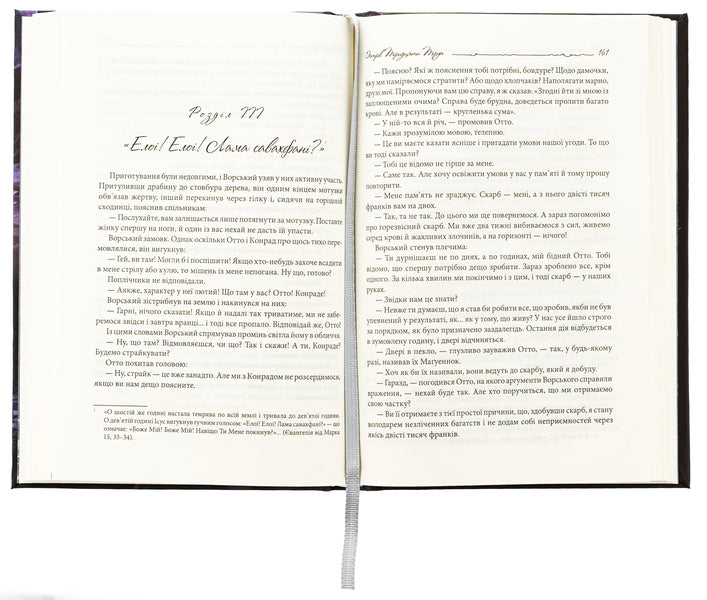 Розділ III
«Елої! Елої! Лама савахфані?»¹
Приготування були недовгими, і Ворський узяв у них активну участь.
Притуливши драбину до стовбура дерева, він одним кінцем мотузки
обв'язав жертву, інший перекинув через гілку і, сидячи на горішній
сходинці, пояснив спільникам:
— Послухайте, вам залишається лише потягти за мотузку. Поставте
жінку спершу на ноги, й один із вас нехай не дасть їй упасти.
Ворський замовк. Однак оскільки Отто і Конрад про щось тихо пере-
мовлялися, він вигукнув:
— Гей, ви там! Могли б і поспішити! Якщо хто-небудь захоче всадити
в мене стрілу або кулю, то мішень із мене непогана. Ну що, готово?
Поплічники не відповідали.
— Аякже, характер у неї лютий! Що там у вас? Отто! Конраде!
Ворський зістрибнув на землю і накинувся на них:
— Гарні, нічого сказати! Якщо й надалі так триватиме, ми не забе-
ремося звідси і завтра вранці... і тоді все пропало. Відповідай же, Отто!
Із цими словами Ворський спрямував промінь світла йому в обличчя.
— Ну, що там? Відмовляєшся, чи що? Так і скажи! А ти, Конраде?
Будемо страйкувати?
Отто похитав головою:
— Ну, страйк — це вже занадто. Але ми з Конрадом не розсердимося,
якщо ви нам дещо поясните.
¹ «О шостій же годині настала темрява по всій землі і тривала до дев'ятої години.
О дев'ятій годині Ісус вигукнув гучним голосом: «Елої! Елої! Лама савахфані?» — що
означає: «Боже Мій! Боже Мій! Навіщо Ти Мене покинув?»... (Євангелія від Марка
15, 33–34).
Острів Тридцяти Трун 161
— Поясню? Які ж пояснення тобі потрібні, бовдуре? Щодо дамочки,
яку ми наміряємося стратити? Або ще щодо хлопчаків? Наполягати марно,
друзі мої. Пропонуючи вам цю справу, я ж сказав: «Згодні йти зі мною із
заплющеними очима? Справа буде брудна, доведеться пролити багато
крові. Але в результаті — кругленька сума».
— У ній-то вся й річ, — промовив Отто.
— Кажи зрозумілою мовою, телепню.
— Це ви маєте казати ясніше і пригадати умови нашої угоди. То що
ви тоді сказали?
— Тобі це відомо не гірше за мене.
— Саме так. Але хочу освіжити умови у вас у пам'яті й тому прошу
повторити.
— Мене пам'ять не зраджує. Скарб — мені, а з нього двісті тисяч
франків вам на двох.
— Так, та не так. До цього ми ще повернемося. А зараз поговоримо
про горезвісний скарб. Ми вже два тижні вибиваємося з сил, живемо
серед крові й жахливих злочинів, а на горизонті — нічого!
Ворський стенув плечима:
— Ти дурнішаєш не по днях, а по годинах, мій бідний Отто. Тобі
відомо, що спершу потрібно дещо зробити. Зараз зроблено все, крім
одного. За кілька хвилин ми покінчимо і з цим, і тоді скарб — у наших
руках.
— Звідки нам це знати?
— Невже ти думаєш, що я став би робити все, що зробив, якби не був
упевнений у результаті, як... як у тому, що живу? У нас усе йшло строго
за порядком, як було призначено заздалегідь. Остання дія відбудеться
в зумовлену годину, і двері відчиняться.
— Двері в пекло, — глузливо зауважив Отто, — так, у будь-якому
разі, називав їх Магуеннок.
— Хоч як би їх називали, вони ведуть до скарбу, який я добуду.
— Гаразд, — погодився Отто, на якого аргументи Ворського справили
враження, — нехай буде так. Але хто поручиться, що ми отримаємо
свою частку?
— Ви її отримаєте з тієї простої причини, що, здобувши скарб, я стану
володарем незліченних багатств і не додам собі неприємностей через
якісь двісті тисяч франків.